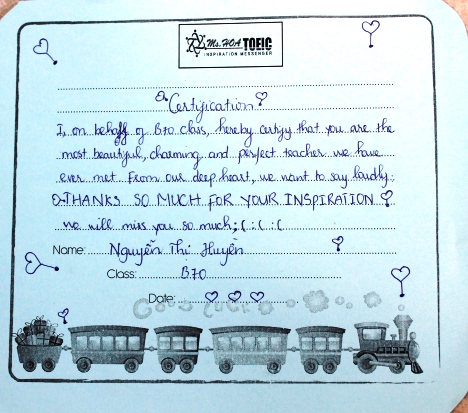 Ms. HOA TOEIC
INSPIRATION MESSENGER
Certification
I, on behalf of B70 class, hereby certify that you are the
most beautiful, charming and perfect teacher we have
ever met. From our deep heart, we want to say loudly:
THANKS SO MUCH FOR YOUR INSPIRATION
We will miss you so much ;( :( :(
Name: Nguyễn Thị Huyền
Class: B70
Date:
Good luck